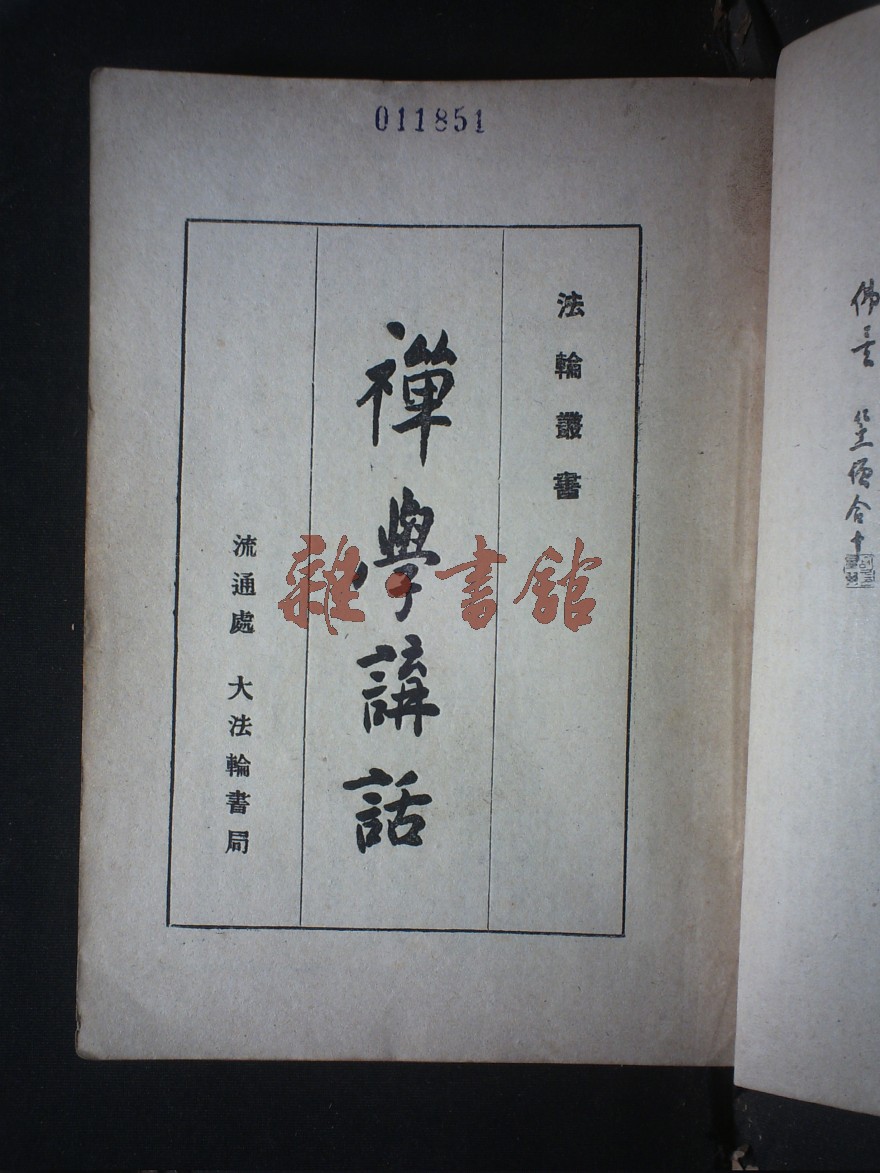 011851
法輪叢書
禪學講話
流通處 大法輪書局
雜·書館